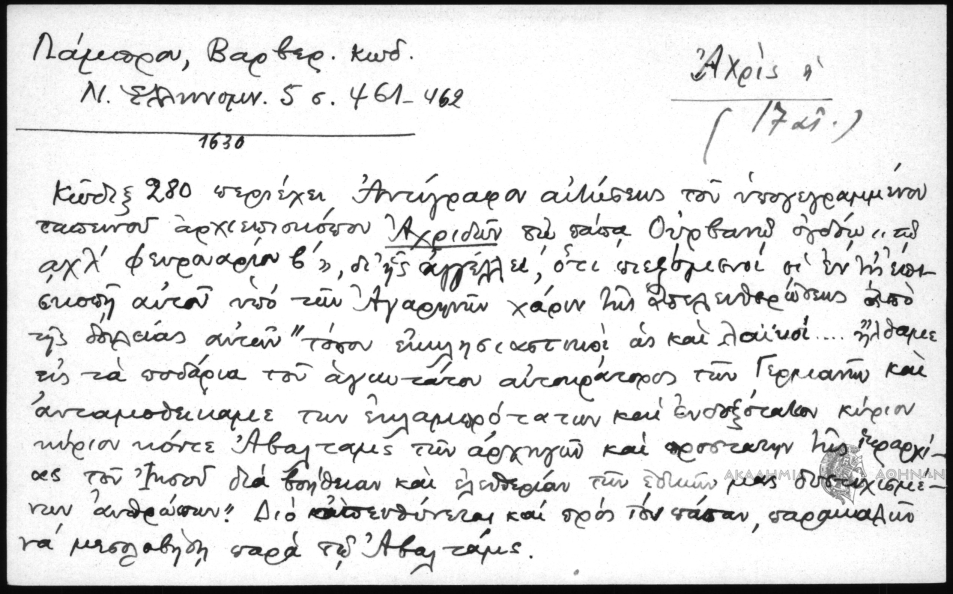 Λάμπρου, Βαρβερ. κωδ.
Ν. Ἑλληνομν. 5 σ. 461-462
1630
Ἀχρὶς ἡ
(17 αἰ.)
Κῶδιξ 280 περιέχει Ἀντίγραφον αἰτήσεως τοῦ ὑπογεγραμμένου
ταπεινοῦ ἀρχιεπισκόπου Ἀχριδῶν τῷ πάπᾳ Οὐρβανῷ ὀγδόῳ „τῷ
αχλ' φευρουαρίου β'", δι' ἧς ἀγγέλλει, ὅτι πιεζόμενοι οἱ ἐν τῇ ἐπι-
σκοπῇ αὐτοῦ ὑπὸ τῶν Ἀγαρηνῶν χάριν τῆς ἀπελευθερώσεως ἀπὸ
τῆς δουλείας αὐτῶν "τόσον ἐκκλησιαστικοὶ ὡς καὶ λαϊκοί.... ἤλθαμε
εἰς τὰ ποδάρια τοῦ ἁγιωτάτου αὐτοκράτορος τῶν Γερμανῶν καὶ
ἀνταμοθείκαμε τὸν ἐκλαμπρότατον καὶ ἐνδοξότατον κύριον
κύριον κόντε Ἀβαλταμὶς τὸν ἀρχηγὸν καὶ προστάτην τῆς ἱεραρχί-
ας τοῦ Ἰησοῦ διὰ βοήθειαν καὶ ἐλευθερίαν τῶν ἐδικῶν μας δυστυχισμέ-
νων ἀνθρώπων". Διὸ ἀπευθύνεται καὶ πρὸς τὸν πάπαν, παρακαλῶν
νὰ μεσολαβήσῃ παρὰ τῷ Ἀβαλτάμις.
ΑΚΑΔΗΜΙΑ ΑΘΗΝΩΝ